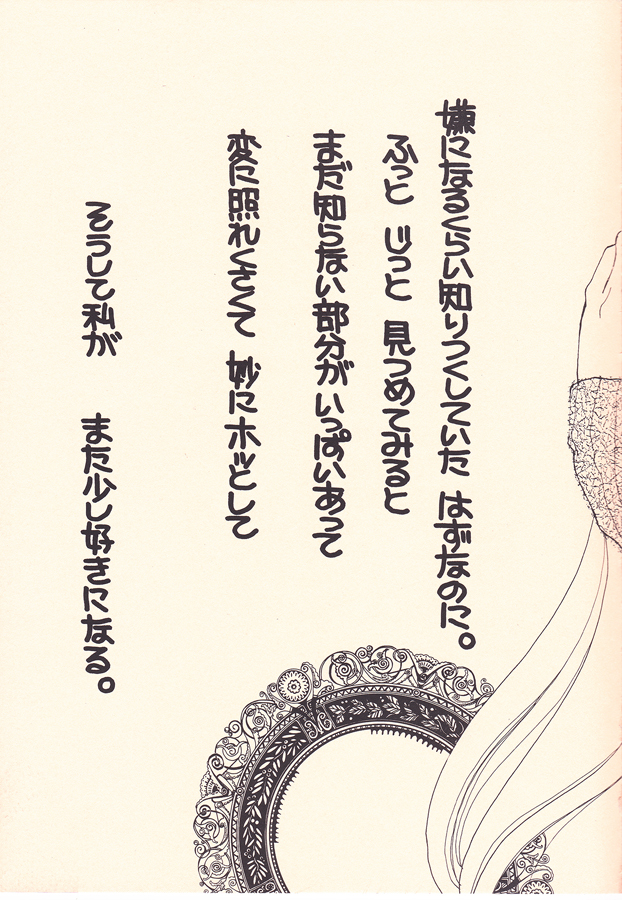 嫌になるくらい知りつくしていた はずなのに。
ふっと じっと 見つめてみると
まだ知らない部分がいっぱいあって
変に照れくさくて 妙にホッとして
そうして私が また少し好きになる。